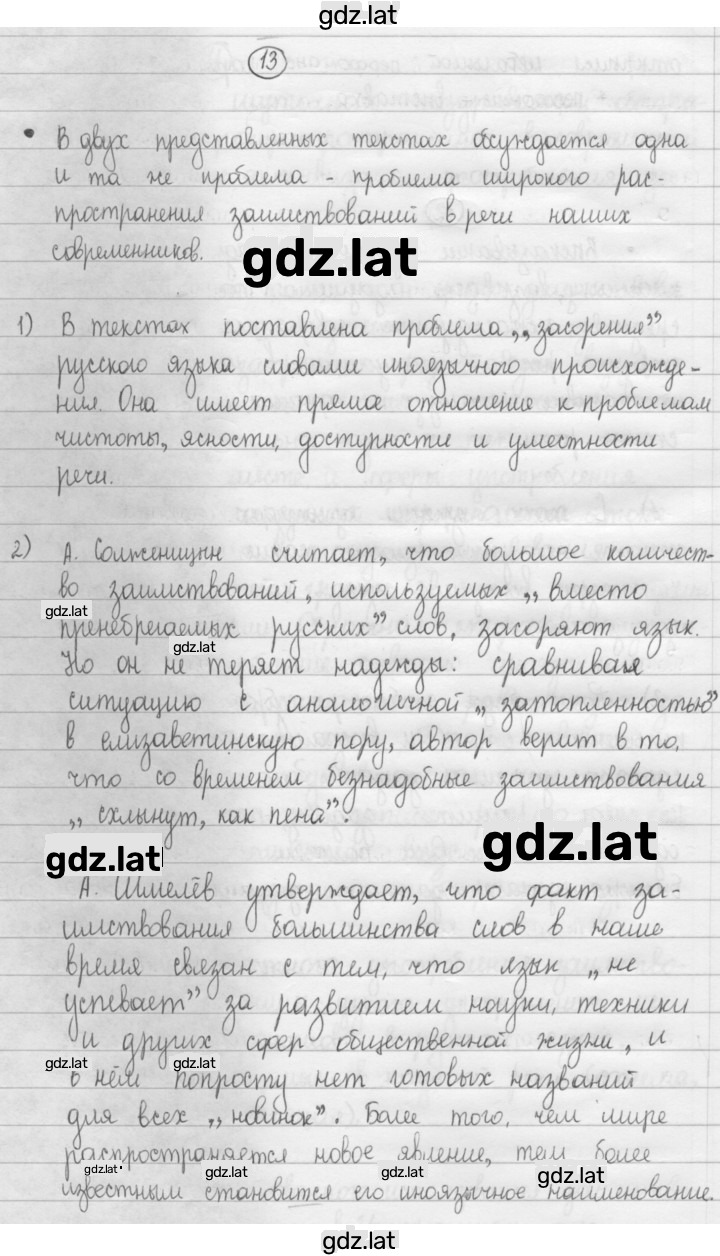 gdz.lat
13
• В двух представленных текстах обсуждается одна
и та же проблема - проблема широкого рас-
пространения заимствований в речи наших
современников.
gdz.lat
1) В текстах поставлена проблема „засорения”
русского языка словами иноязычного происхожде-
ния. Она имеет прямое отношение к проблемам
чистоты, ясности, доступности и уместности
речи.
2) А. Солженицын считает, что большое количест-
во заимствований, используемых „вместо
gdz.lat
пренебрегаемых русских” слов, засоряют язык.
gdz.lat
Но он не теряет надежды: сравнивая
ситуацию с аналогичной „затопленностью”
в елизаветинскую пору, автор верит в то,
что со временем безнадобные заимствования
„схлынут, как пена”.
gdz.lat gdz.lat
А. Шмелёв утверждает, что факт за-
имствования большинства слов в наше
время связан с тем, что язык „не
успевает” за развитием науки, техники
и других сфер общественной жизни, и
gdz.lat gdz.lat
в нём попросту нет готовых названий
для всех „новинок”. Более того, чем шире
распространяется новое явление, тем более
gdz.lat gdz.lat gdz.lat
известным становится его иноязычное наименование.
gdz.lat